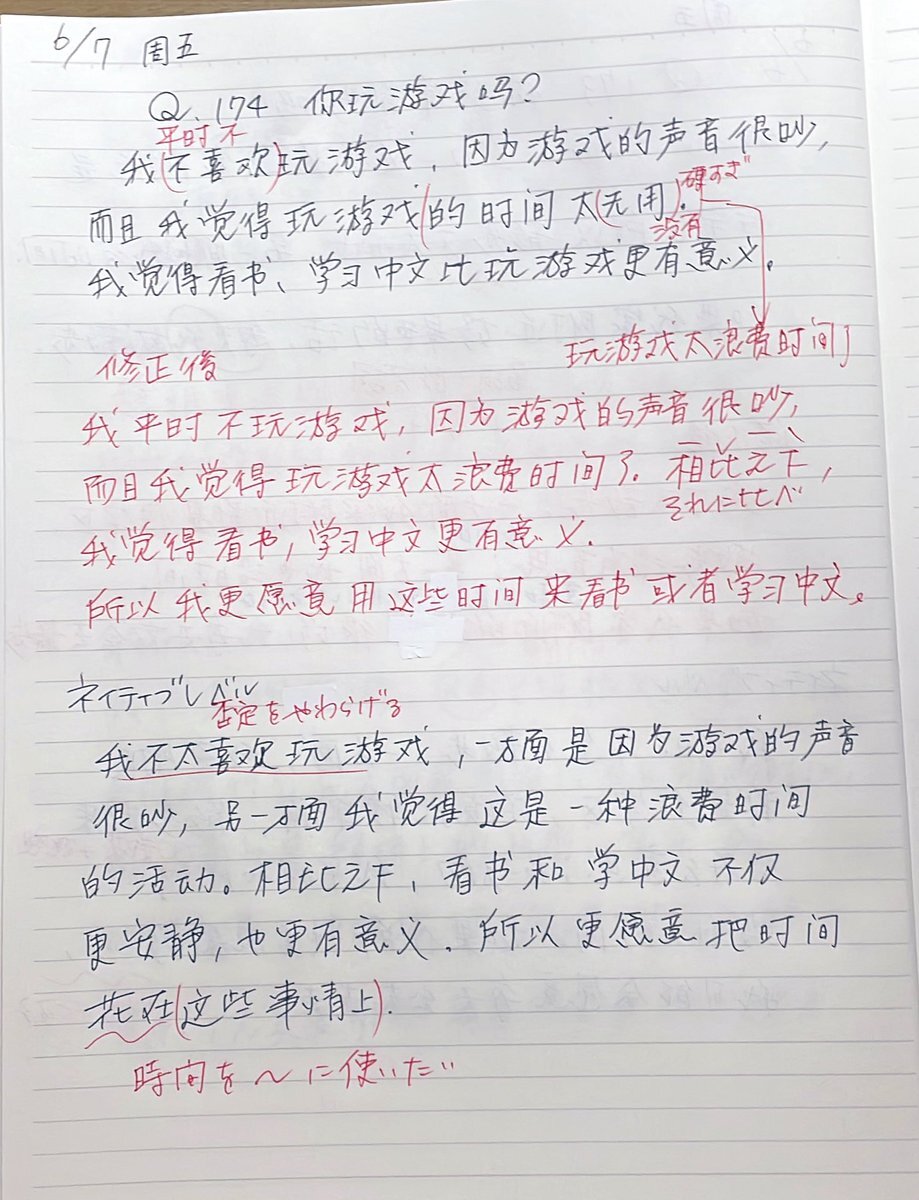 6/7 周五
Q.174 你玩游戏吗?
平时不
我(不喜欢)玩游戏,因为游戏的声音很吵,
而且我觉得玩游戏(的时间太(无用).硬すぎ
没有
我觉得看书、学习中文比玩游戏更有意义。
玩游戏太浪费时间了
修正後
我平时不玩游戏,因为游戏的声音很吵,
而且我觉得玩游戏太浪费时间了.相比之下,
それに比べ
我觉得看书,学习中文更有意义.
所以我更愿意用这些时间来看书或者学习中文。
ネイティブレベル
否定をやわらげる
我不太喜欢玩游戏,一方面是因为游戏的声音
很吵,另一方面我觉得这是一种浪费时间
的活动。相比之下,看书和学中文不仅
更安静,也更有意义.所以更愿意把时间
花在(这些事情上).
時間を〜に使いたい